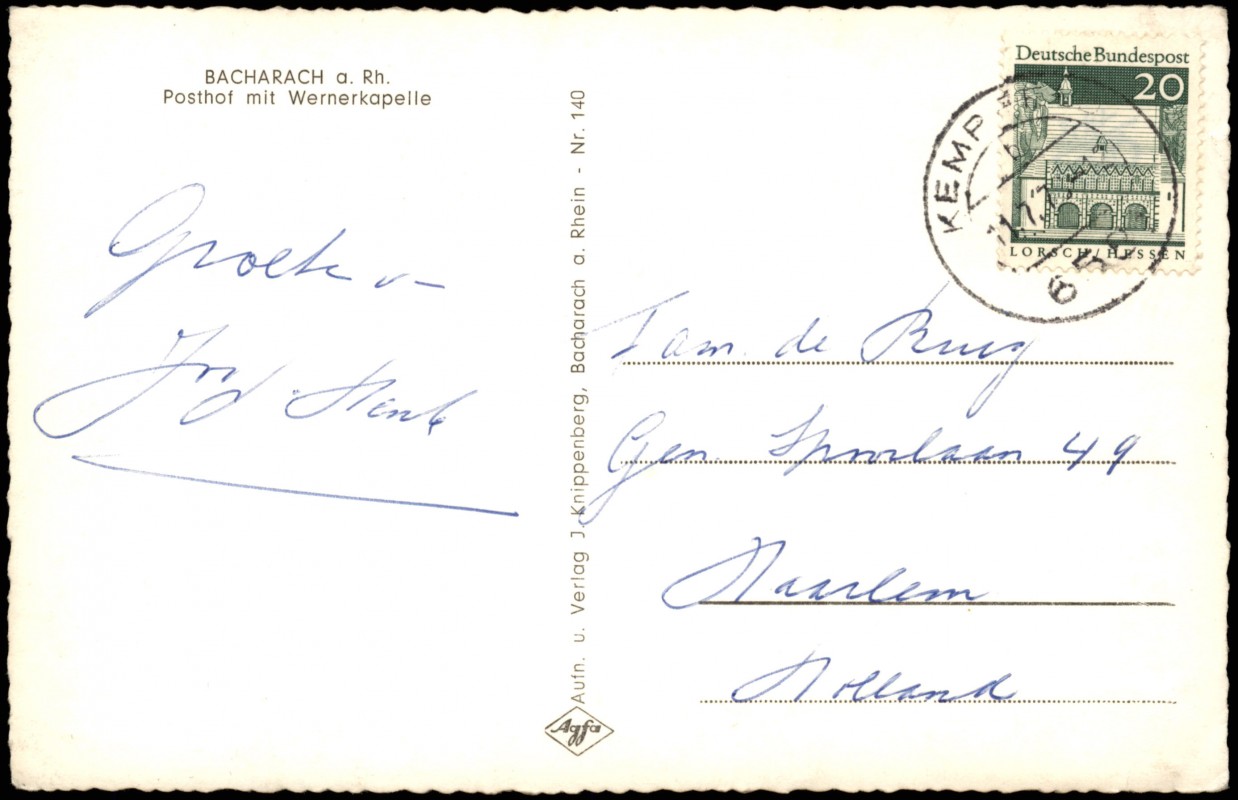 BACHARACH a. Rh.
Posthof mit Wernerkapelle
Groeten
Aufn. u. Verlag J. Knippenberg, Bacharach a. Rhein - Nr. 140
Agfa
Deutsche Bundespost
20
LORSCH/HESSEN
KEMP
Fam. de Burg
Gen. Spoorlaan 49
Haarlem
Holland